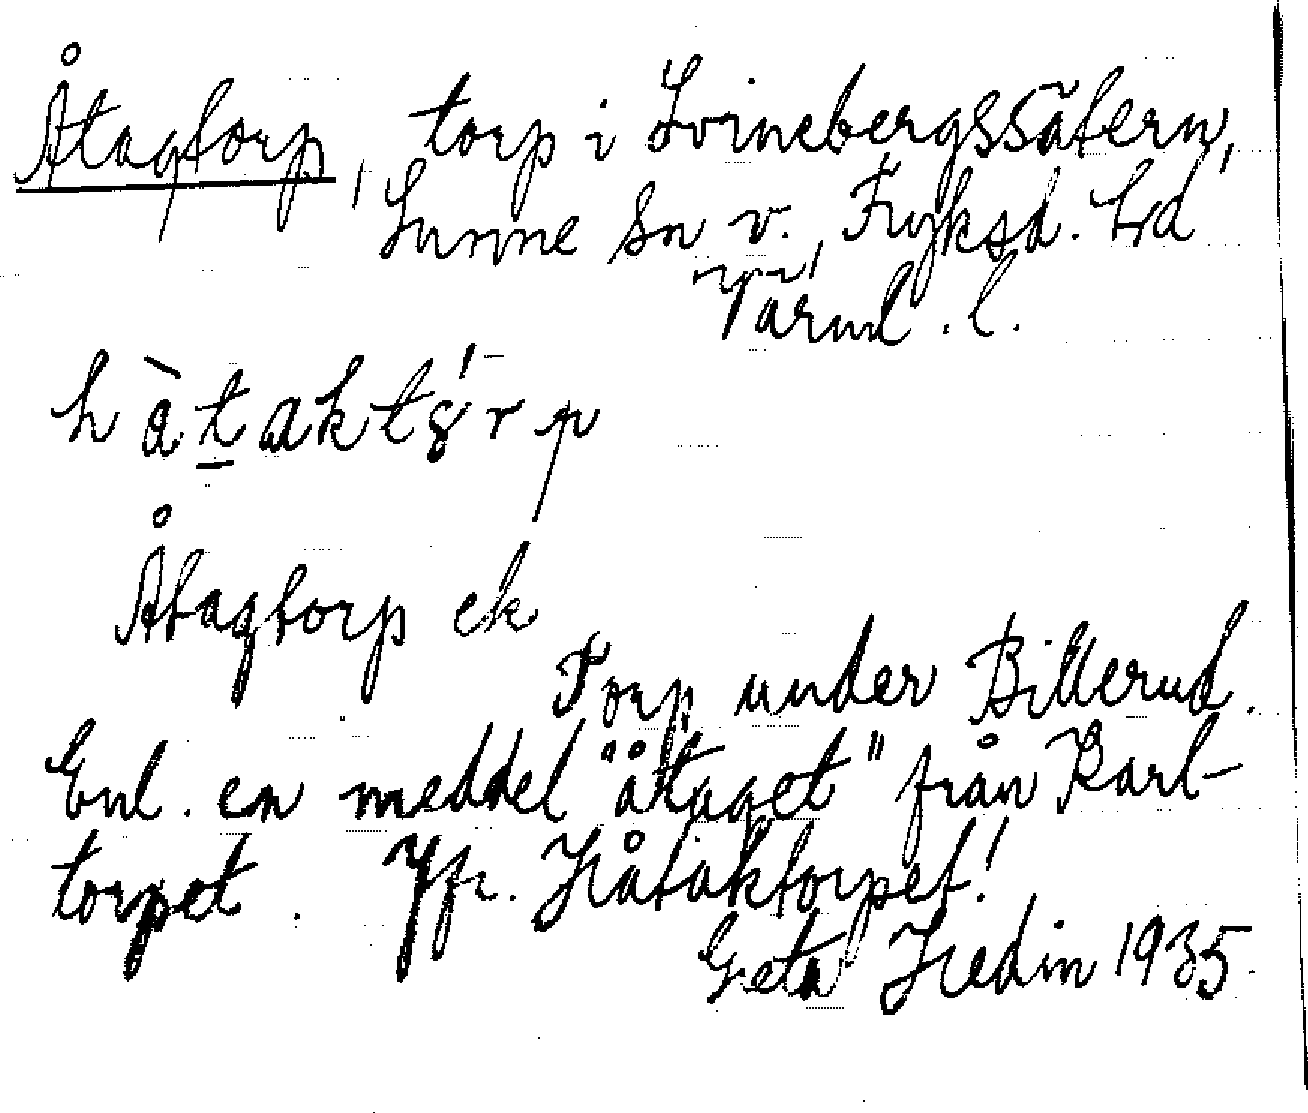 Åtagtorp, torp i Svinebergssätern,
Sunne sn v. Fryksd. hd
Värml. l.
håtaktórp
Åtagtorp ek
Torp under Billerud.
Enl. en meddel "åtaget" från Karl-
torpet. Jfr. Håtaktorpet!
Greta Hedin 1935.